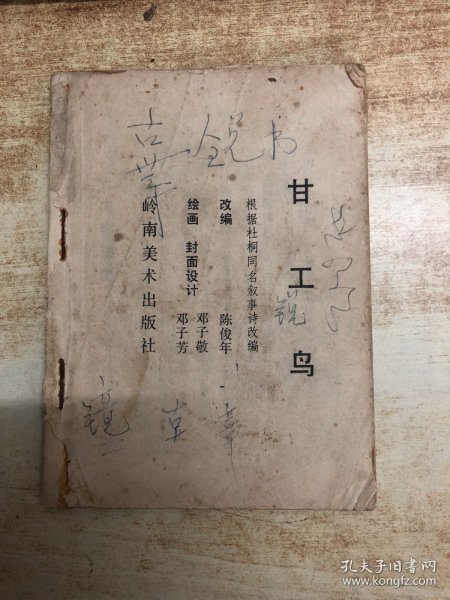 甘工鸟
根据杜桐同名叙事诗改编
改编 陈俊年
绘画 封面设计 邓子敬
邓子芳
岭南美术出版社
古
锐书
锐
孔夫子旧书网
www.kongfz.com